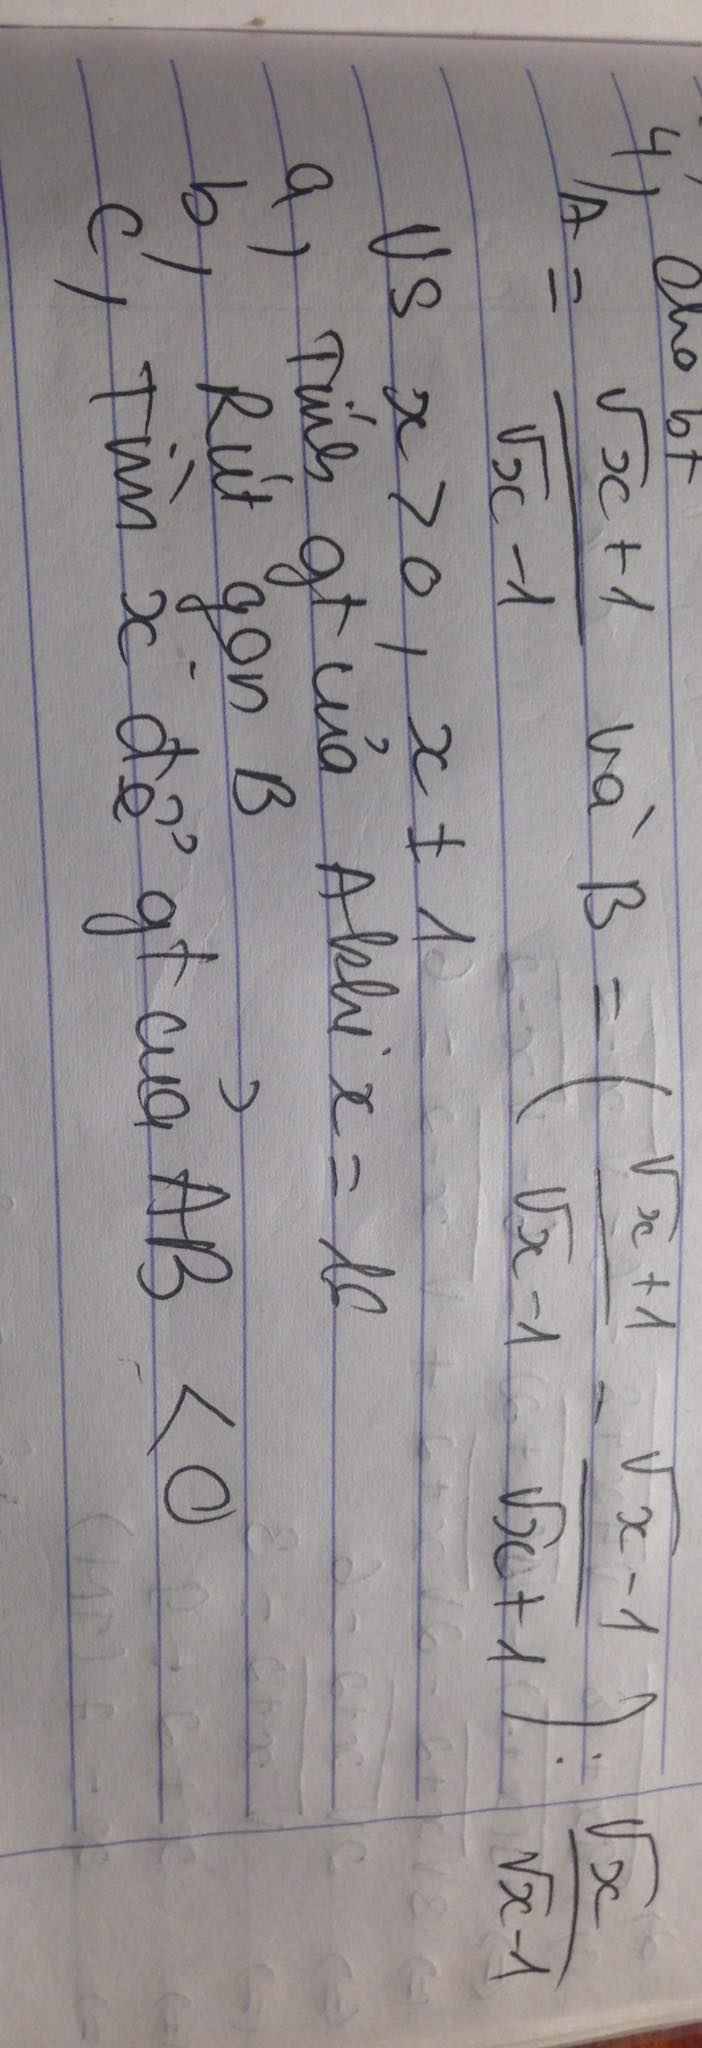 4, Cho bt
A = \frac{\sqrt{x}+1}{\sqrt{x}-1} và B = (\frac{\sqrt{x}+1}{\sqrt{x}-1} - \frac{\sqrt{x}-1}{\sqrt{x}+1}) : \frac{\sqrt{x}}{\sqrt{x}-1}
Vs x > 0, x ≠ 1
a, Tính gt của A khi x = 16
b, Rút gọn B
c, Tìm x để gt của AB < 0